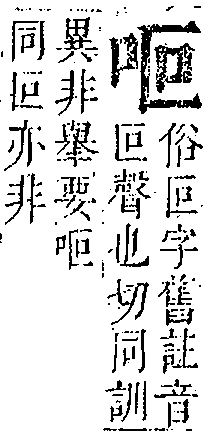 俗叵字舊註音
叵聲也切同訓
異非舉要
同叵亦非